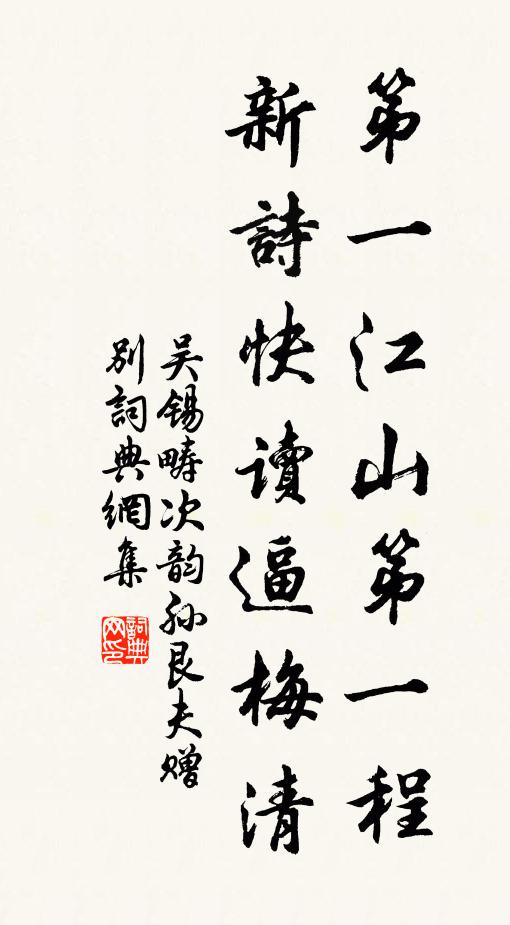 第一江山第一程
新詩快讀逼梅清
吴錫疇次韵孙艮夫赠
别詞典網集
詞典网印